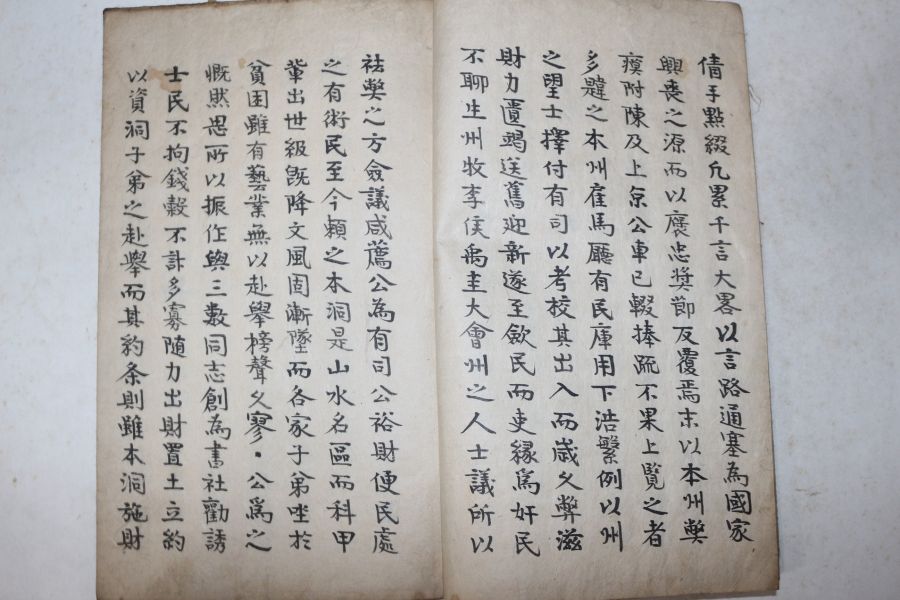 倩手點綴凢累千言大畧以言路通塞為國家
興喪之源而以褒忠奬節反覆焉末以本州獘
瘼附陳及上京公車已輟捧疏不果上覧之者
多韙之本州雇馬廳有民庫用下浩繁例以州
之望士擇付有司以考校其出入而歲久弊滋
財力匱竭送舊迎新遂至歛民而吏緣爲奸民
不聊生州牧李侯禹圭大會州之人士議所以
祛獘之方僉議咸薦公為有司公裕財便民處
之有術民至今頼之本洞是山水名區而科甲
輩出世級既降文風固漸墜而各家子弟唑於
貧困雖有藝業無以赴擧榜聲久寥公爲之
慨然思所以振作與三數同志創為書社勸誘
士民不拘錢糓不計多寡随力出財置土立約
以資洞子弟之赴擧而其約条則雖本洞施財